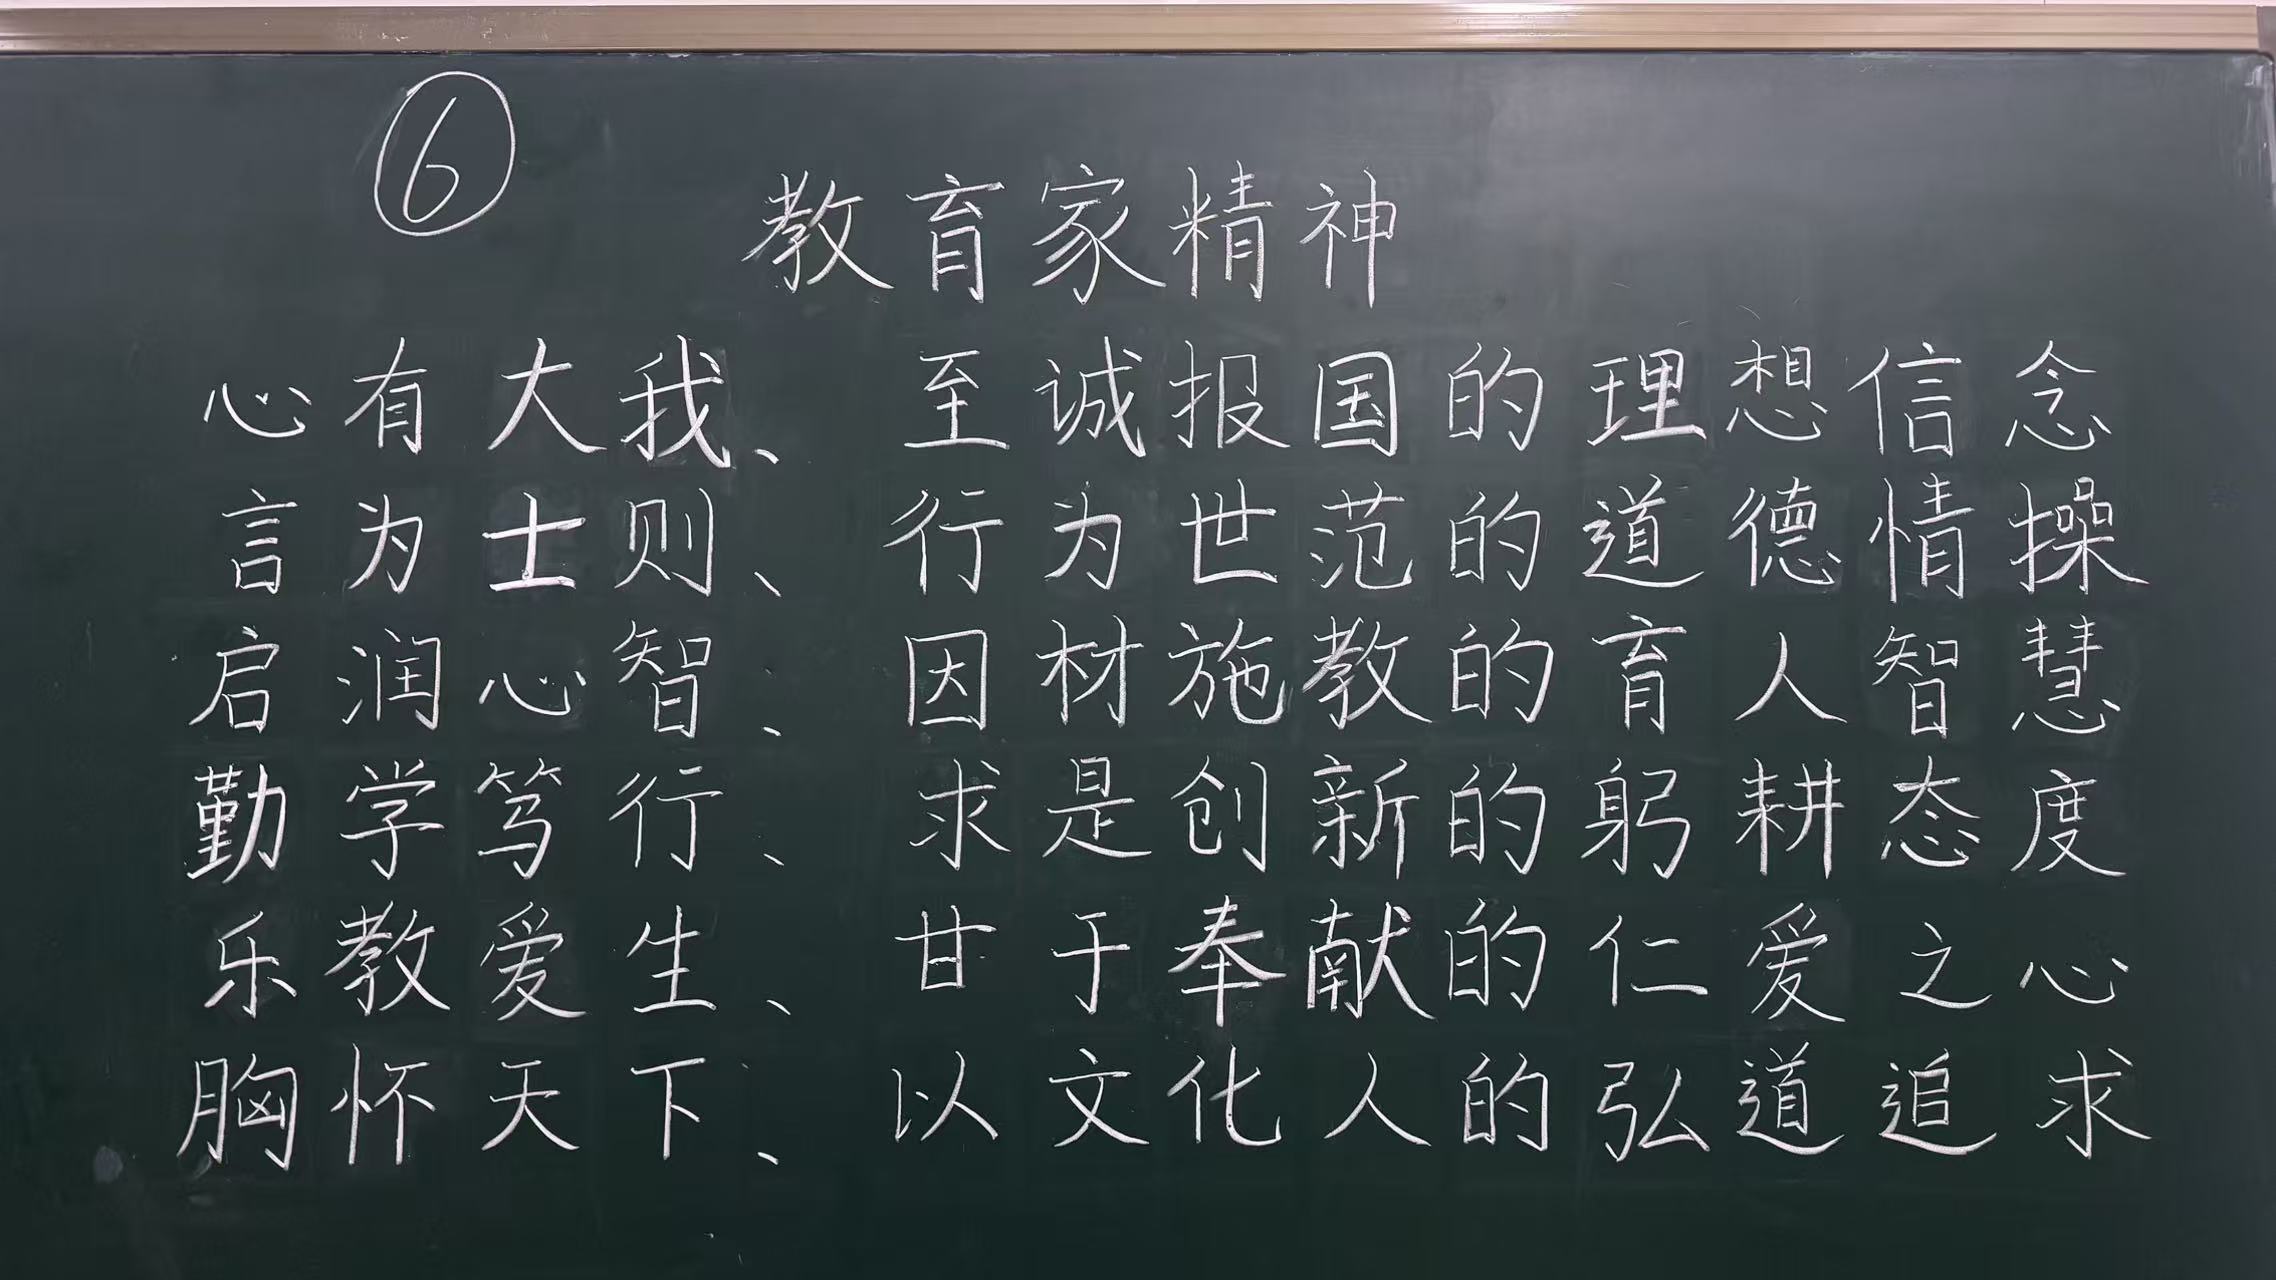 ⑥
教育家精神
心有大我、至诚报国的理想信念
言为士则、行为世范的道德情操
启润心智、因材施教的育人智慧
勤学笃行、求是创新的躬耕态度
乐教爱生、甘于奉献的仁爱之心
胸怀天下、以文化人的弘道追求